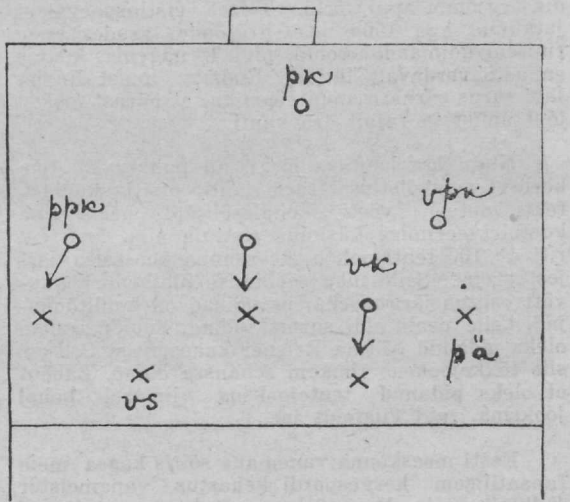 pk
ppk
vpk
vk
pä
vs